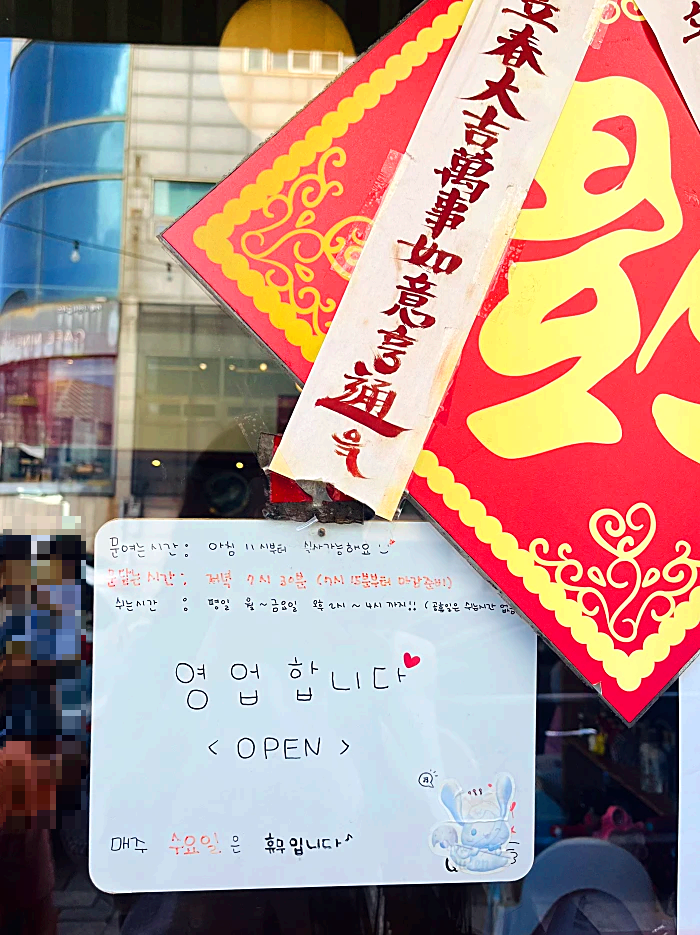 立春大吉萬事如意亨通
문여는시간: 아침 11시부터 식사가능해요
문닫는시간: 저녁 7시 30분 (7시 15분부터 마감준비)
쉬는시간 : 평일 월~금요일 오후 2시~4시 까지!! (공휴일은 쉬는시간 없
영업합니다
< OPEN >
매주 수요일은 휴무입니다